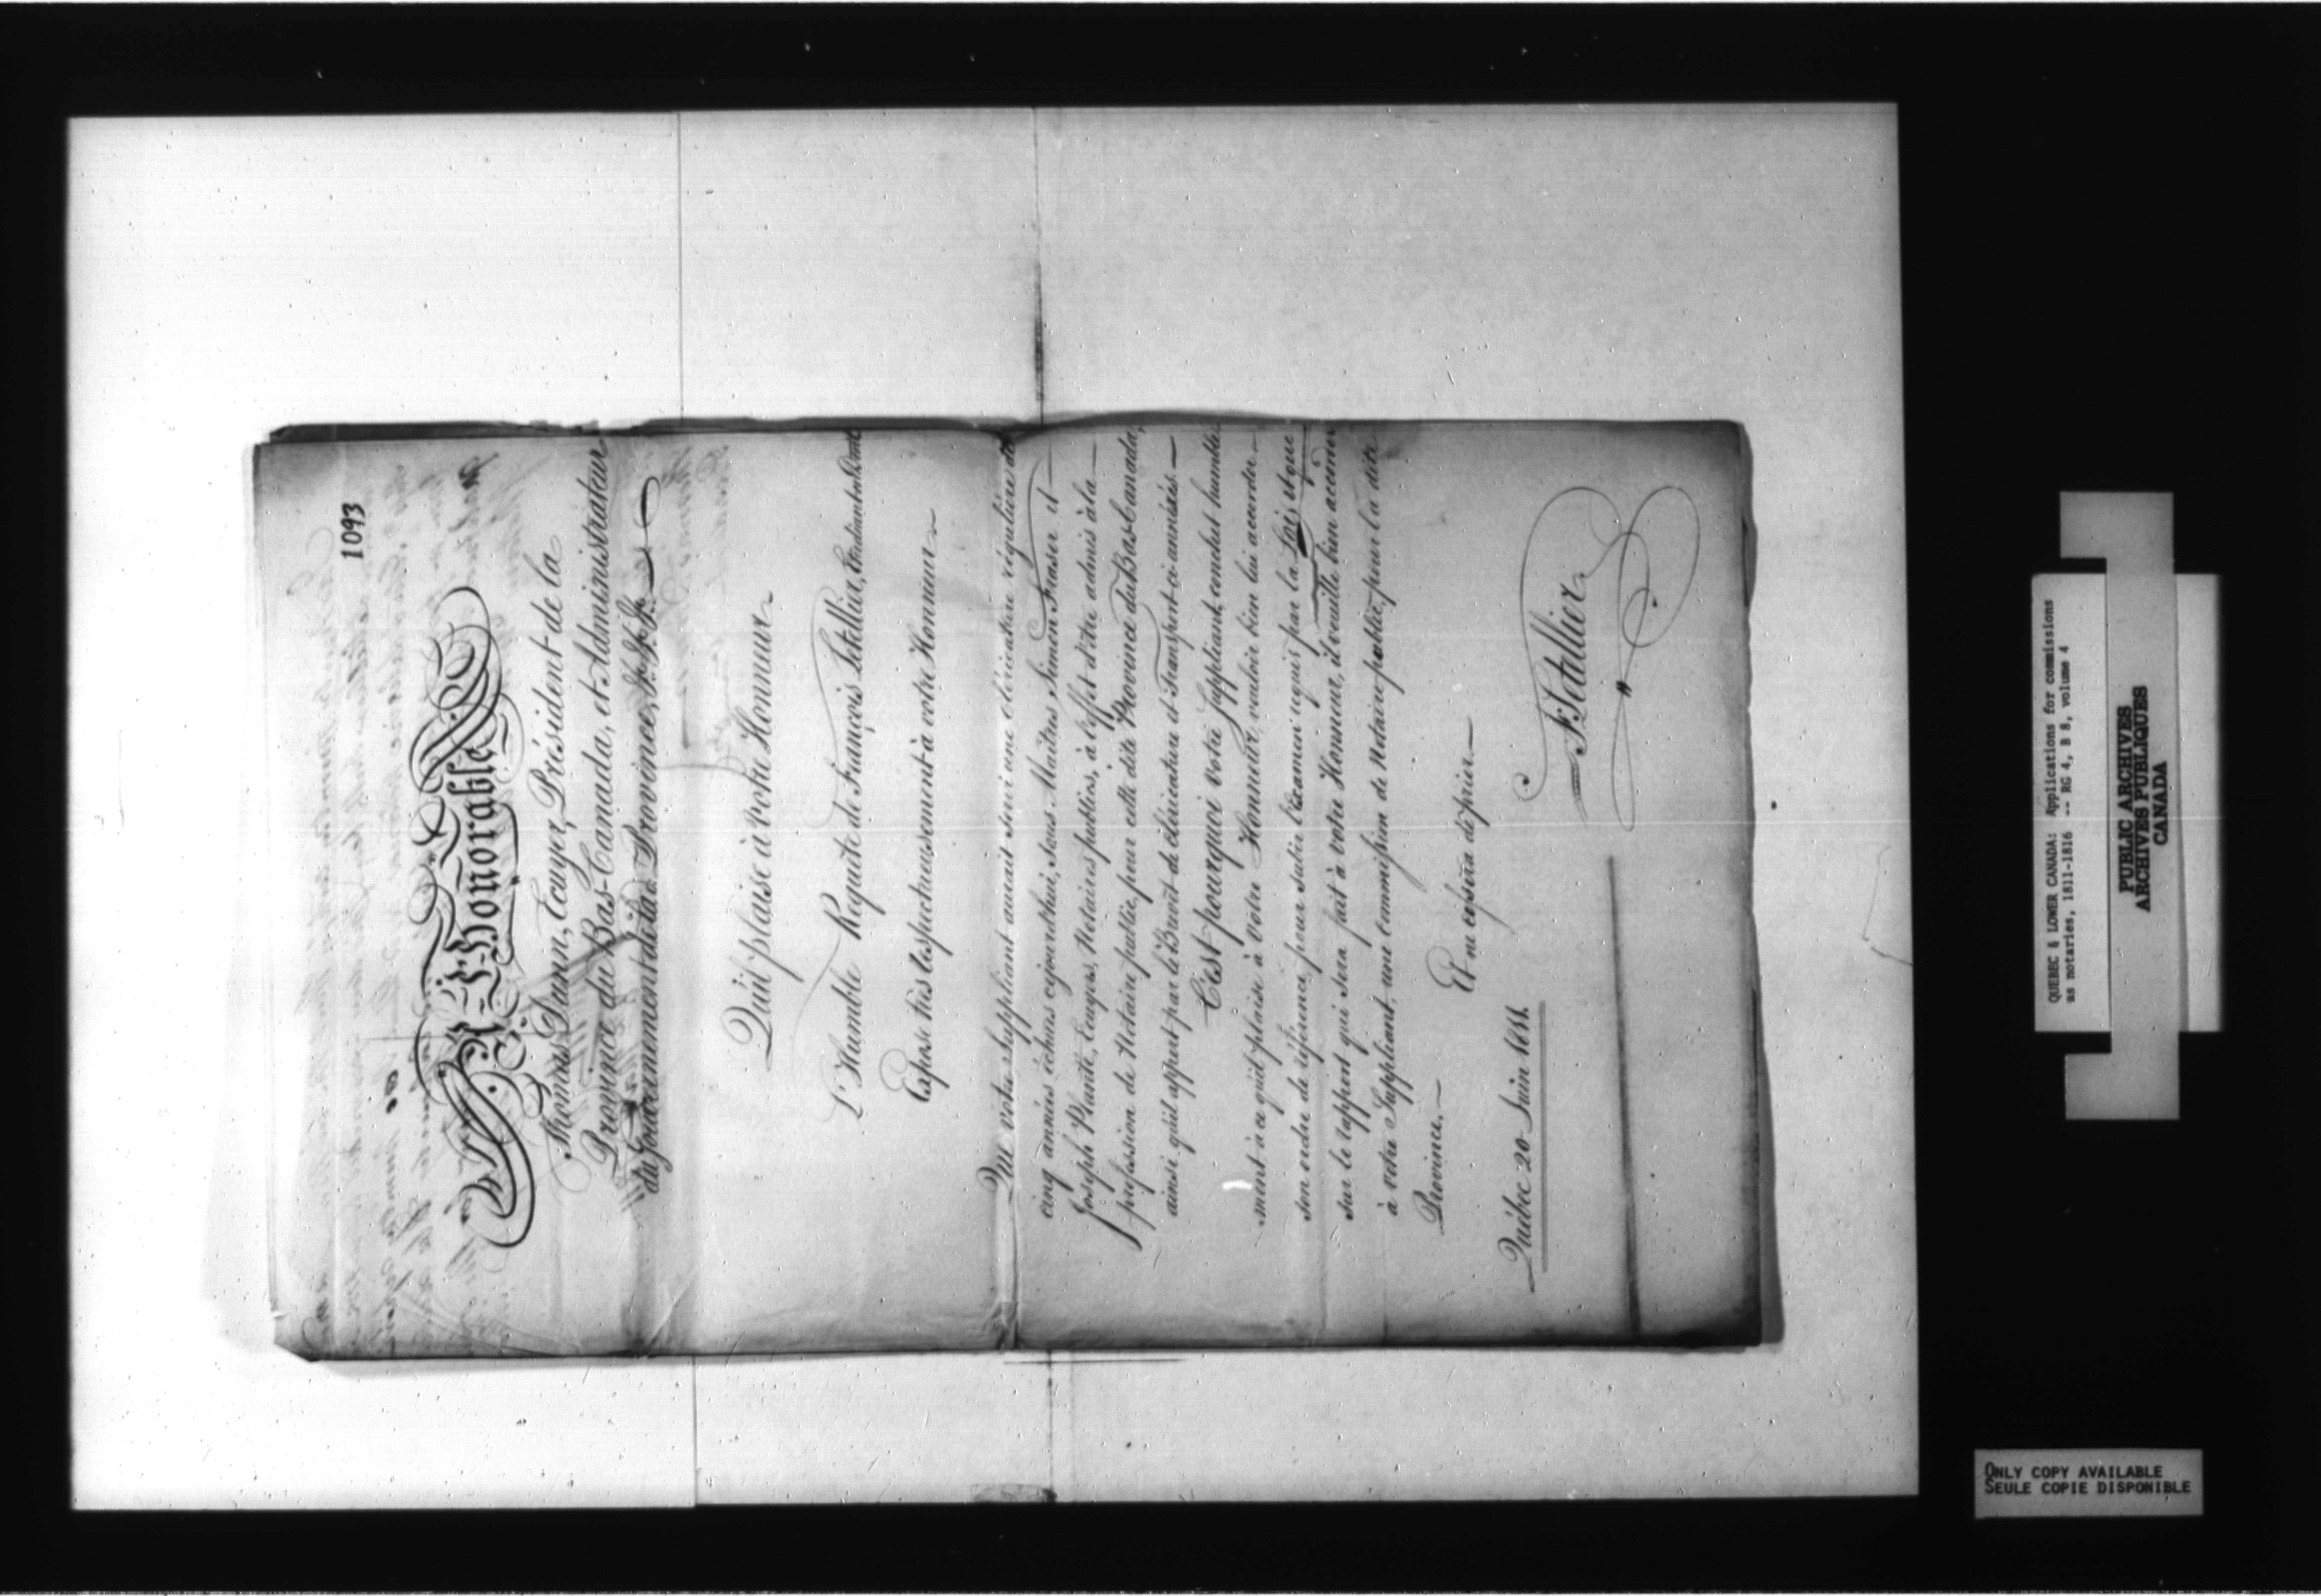 1093
A l'Honorable
Thomas Dunn, Ecuyer, Président de la
Province du Bas-Canada, et Administrateur
du Gouvernement de la d. Province, &. &. &.
Qu'il plaise à votre Honneur
L'Humble Requête de François Letellier, Etudiant en
Expose très respectueusement à votre Honneur
Que votre suppliant aurait suivi une clericature régulière de
cinq années échues cejourd'hui, sous Maîtres Simon Fraser et
Joseph Planté, Ecuyers, Notaires publics, à l'effet d'être admis à la
profession de Notaire public, pour cette dite Province du Bas-Canada,
ainsi qu'il appert par le Brevet de clericature et Transport ci-annéxés
C'est pourquoi votre Suppliant, conclut humble-
ment à ce qu'il plaise à votre Honneur, vouloir bien lui accorder
son ordre de référence, pour subir l'Examen requis par la Loi, et que
sur le rapport qui sera fait à votre Honneur, il veuille bien accorder
à votre Suppliant, une Commission de Notaire public, pour la dite
Province.
Et ne cessera de prier.
Québec 20 Juin 1811.
F. Letellier
QUEBEC & LOWER CANADA: Applications for commissions
as notaries, 1811-1816 -- RG 4, B 8, volume 4
PUBLIC ARCHIVES
ARCHIVES PUBLIQUES
CANADA
ONLY COPY AVAILABLE
SEULE COPIE DISPONIBLE